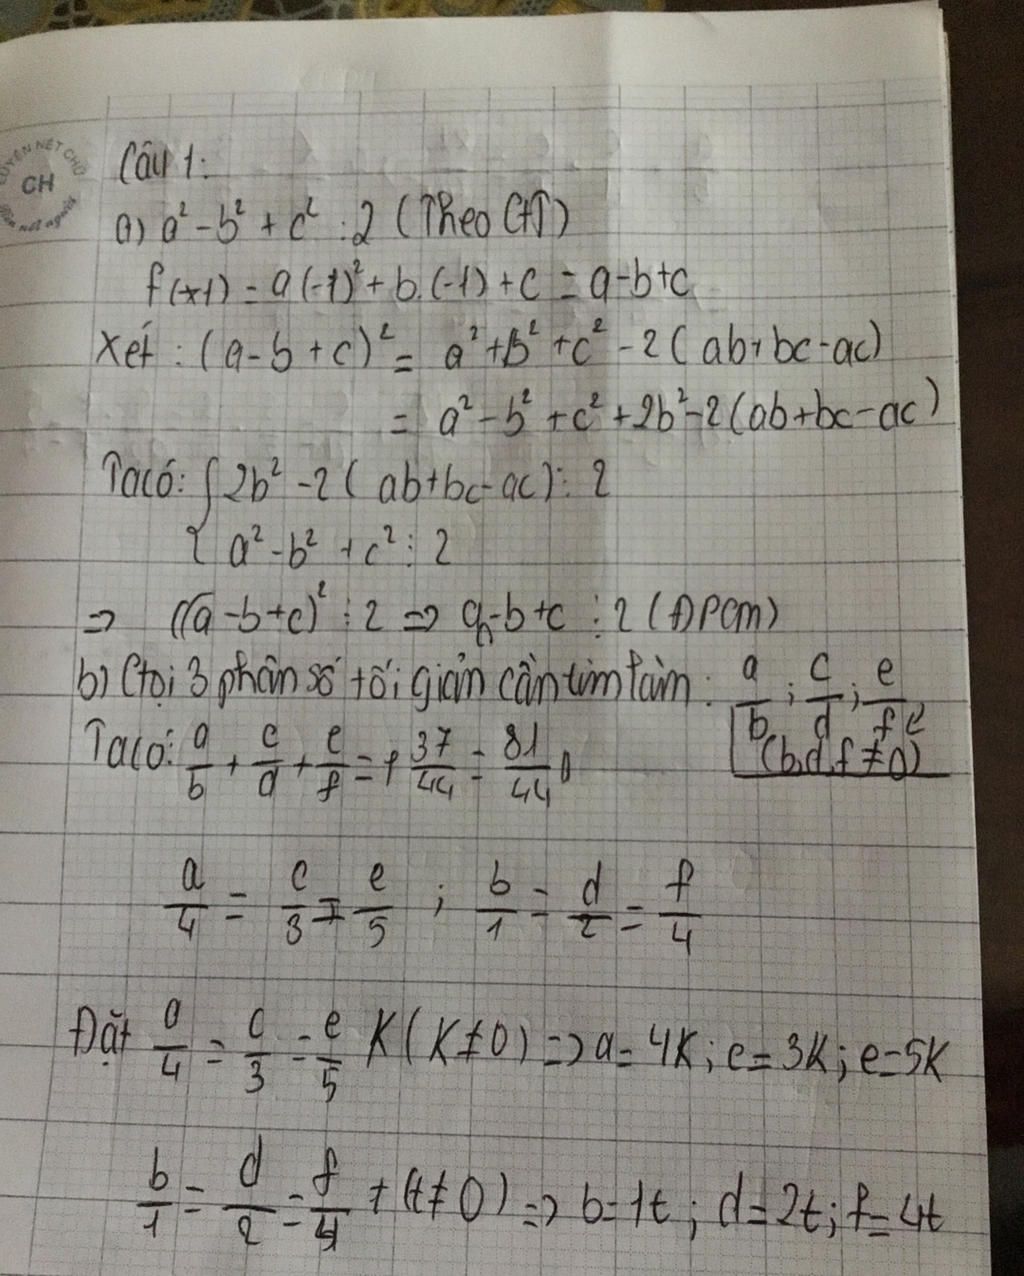 CH
Câu 1:
a) a² - b² + c² ⋮ 2 (Theo GT)
f(-1) = a(-1)² + b.(-1) + c = a-b+c
Xét : (a - b + c)² = a² + b² + c² - 2(ab + bc - ac)
= a² - b² + c² + 2b² - 2(ab+bc-ac)
Ta có: { 2b² - 2(ab+bc-ac) ⋮ 2
{ a² - b² + c² ⋮ 2
=> (a - b + c)² ⋮ 2 => a-b+c ⋮ 2 (ĐPCM)
b) Gọi 3 phân số tối giản cần tìm làm : a/b ; c/d ; e/f
(b,d,f ≠ 0)
Ta có: a/b + c/d + e/f = 1 37/44 = 81/44
a/4 = c/3 = e/5 ; b/1 = d/2 = f/4
Đặt a/4 = c/3 = e/5 K (K ≠ 0) => a = 4K ; c = 3K ; e = 5K
b/1 = d/2 = f/4 t (t ≠ 0) => b = 1t ; d = 2t ; f = 4t